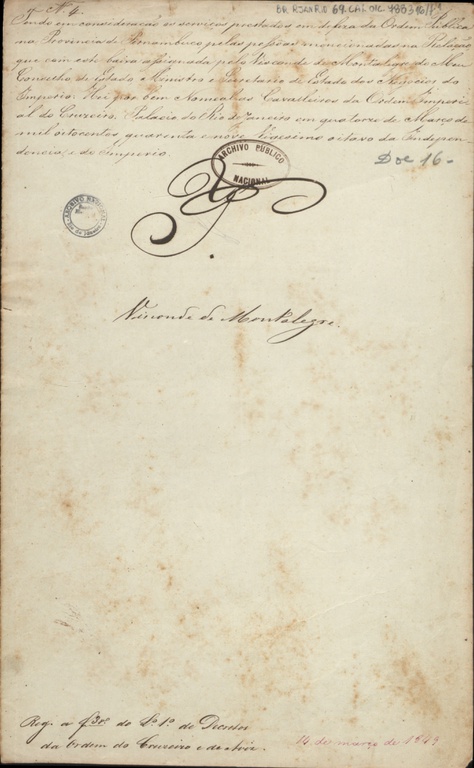 BR RJANRIO 69.CAI.DIC.
Nº 4.
Tendo em consideração os serviços prestados em defeza da Ordem Publica
na Provincia de Pernambuco pelas pessoas mencionadas na Relação
que com este baixa assignada pelo Visconde de Montalegre do Meu
Conselho de Estado, Ministro e Secretario de Estado dos Negocios do
Imperio: Hei por bem Nomeal-as Cavalleiros da Ordem Imperi-
al do Cruzeiro. Palacio do Rio de Janeiro em quatorze de Março de
mil oitocentos quarenta e nove, Vigesimo oitavo da Indepen-
dencia, e do Imperio.
ARCHIVO PUBLICO
NACIONAL
Doc 16-
ARCHIVO NACIONAL
Rio de Janeiro
Visconde de Montalegre.
Reg. a f. 30 do Lº 1º de Decretos
da Ordem do Cruzeiro
14 de março de 1849